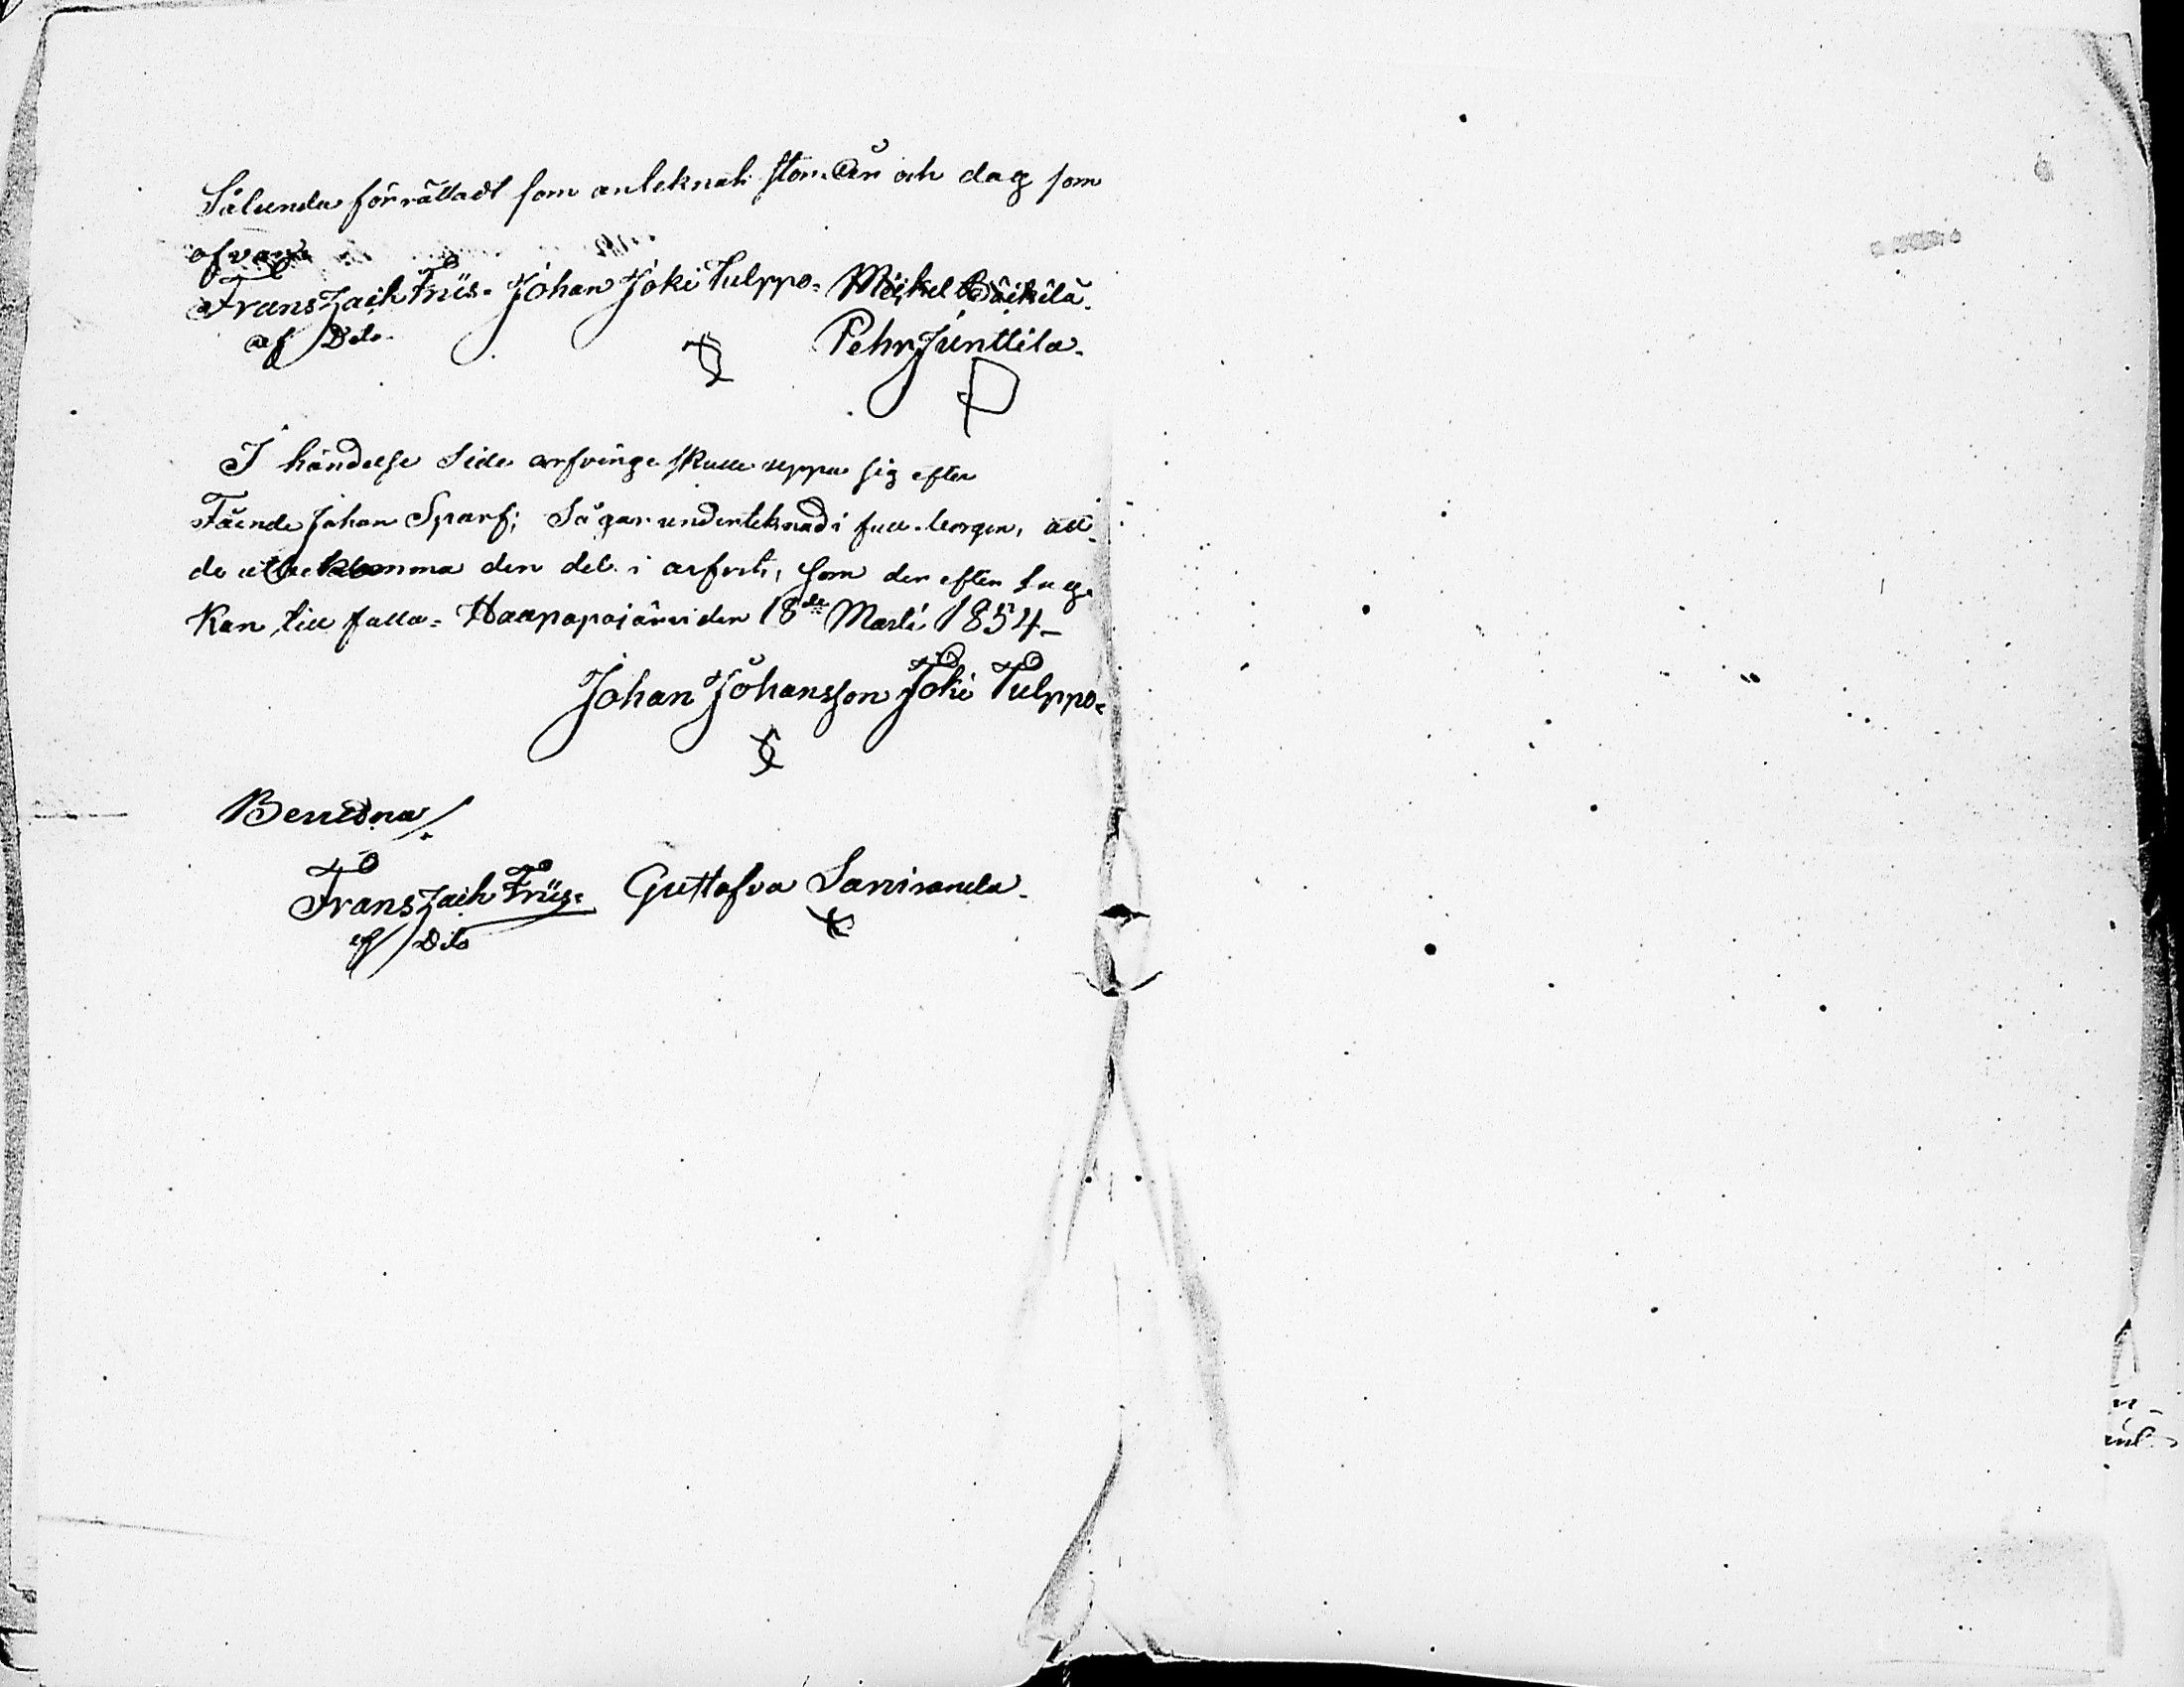 Sålunda förrättadt som anteknat står. År och dag som
ofvan
Frans Zach Friis. Johan Joki Tulppo. Mickel Päikilä.
af Dito. Pehr Junttila.
I händelse side arfvinge skulle uppe sig efter
Fäende Johan Sparf; Sågar underteknad i full borgen, att
de utbekomma den del i arfvet, som der efter lag.
Kan till falla. Haapapajärvi den 18de Marti 1854
Johan Johansson Joki Tulppo.
Bevidna
Frans Zach Friis. Gustafva
af Dito